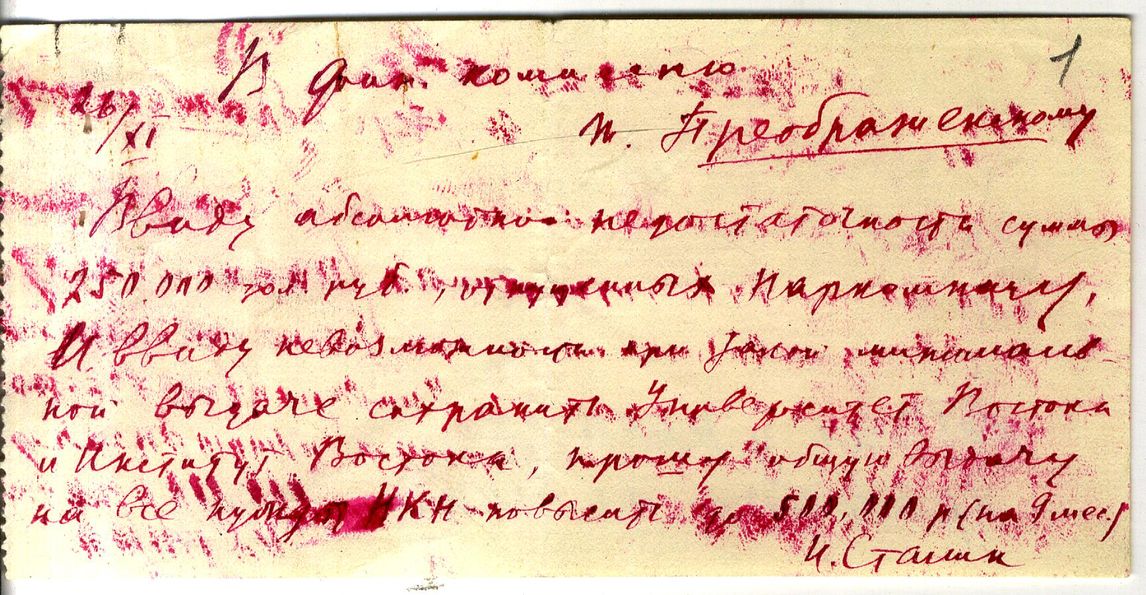 1
В фин. комиссию
26/XI
т. Преображенскому
Ввиду абсолютной недостаточности суммы
250.000 зол. руб., отпущенных Наркомнацу,
и ввиду невозможности при такой минималь-
ной выдаче сохранить Университет Востока
и Институт Востока, прошу общую выдачу
на все нужды НКН повысить до 500,000 р (на 9 мес)
И. Сталин